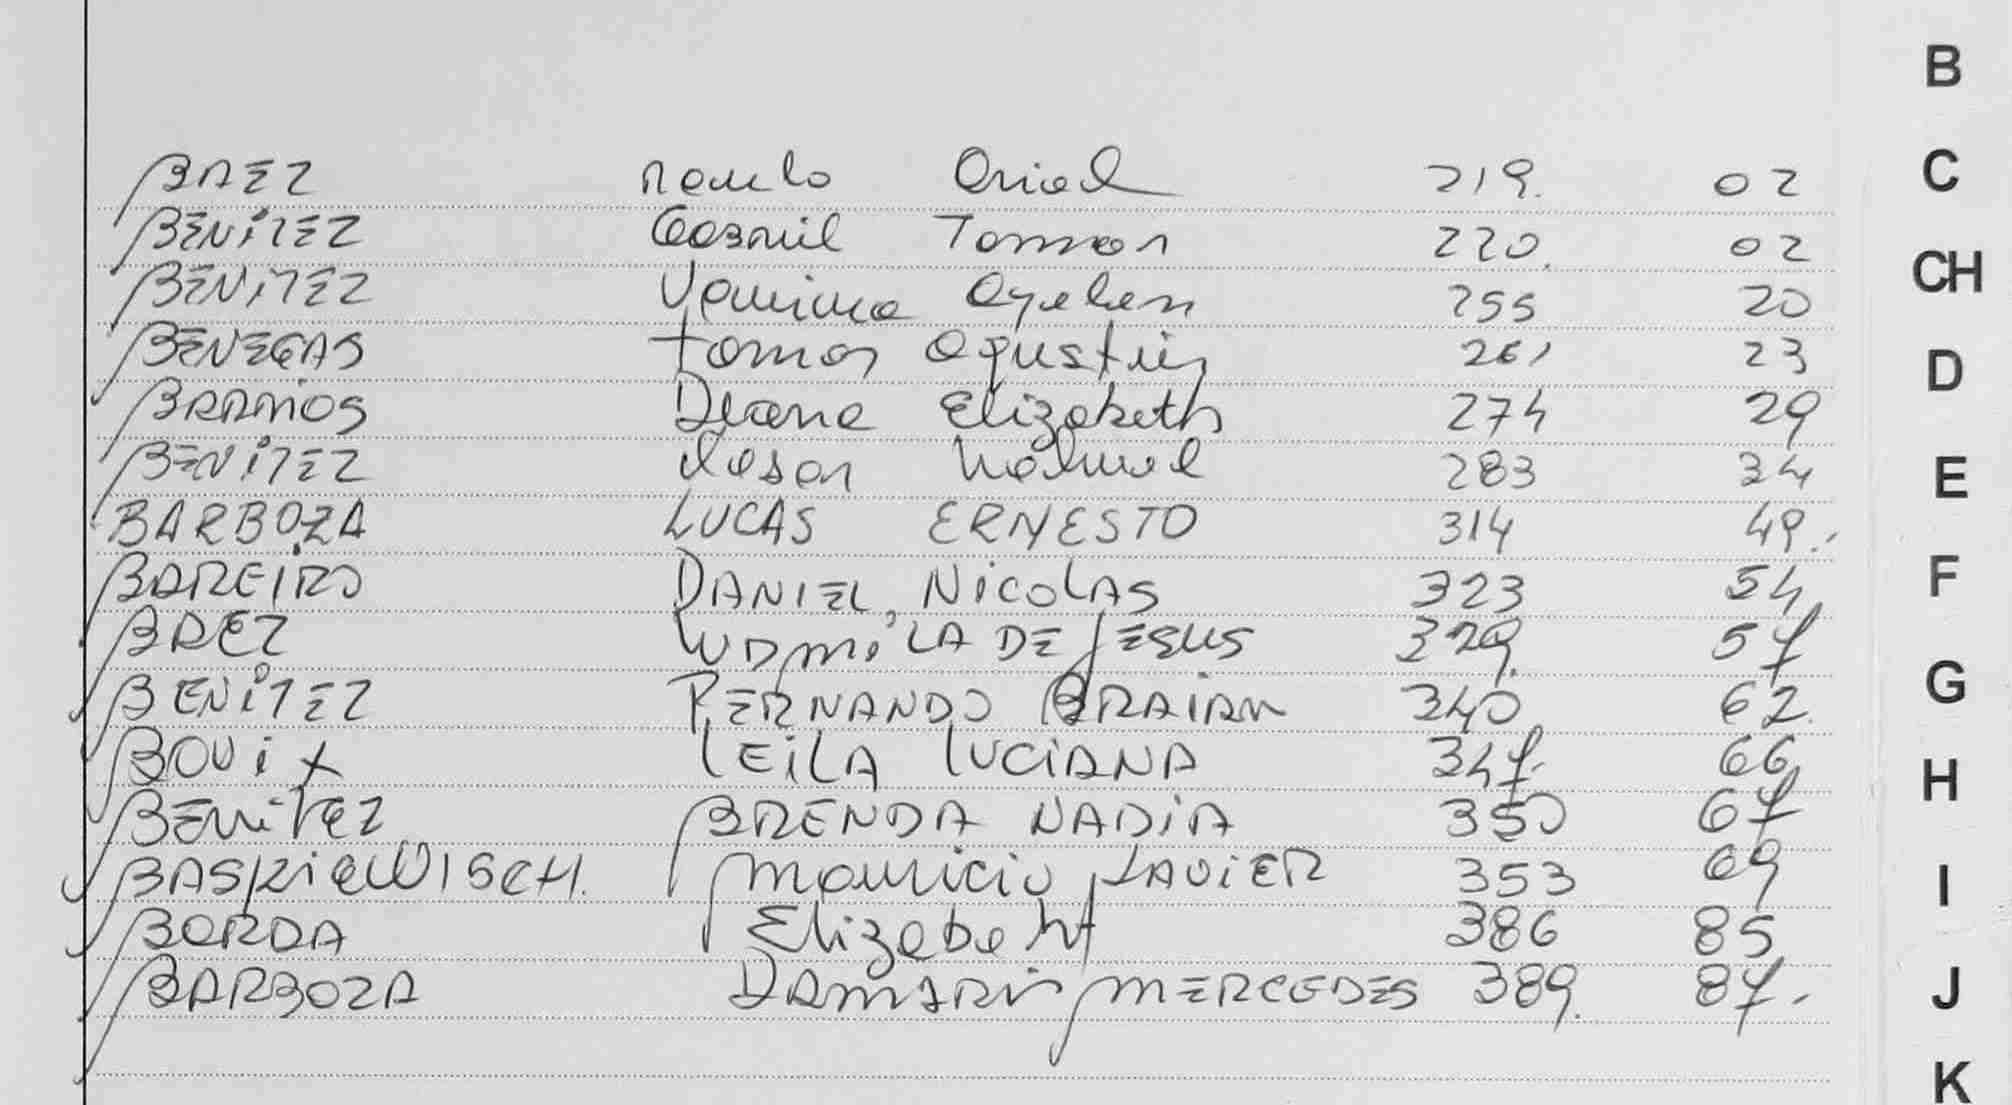 B
BAEZ Oriel 219. 02
C
BENITEZ Gabriel Tomas 220. 02
CH
BENITEZ Yanina Ayelen 255 20
BENEGAS Tomas Agustin 261 23
D
BRAMOS Diana Elizabeth 274 29
BENITEZ Nahuel 283 34
E
BARBOZA LUCAS ERNESTO 314 49.
BAREIRO DANIEL, NICOLAS 323 54
F
BAEZ LUDMILA DE JESUS 329. 57
BENITEZ FERNANDO BRAIAN 340 62.
G
BOUIX LEILA LUCIANA 347. 66
H
BENITEZ BRENDA NADIA 350 67
MAURICIO JAVIER 353 69
I
BORDA Elizabeht 386 85
BARBOZA DAMARIS MERCEDES 389. 87.
J
K